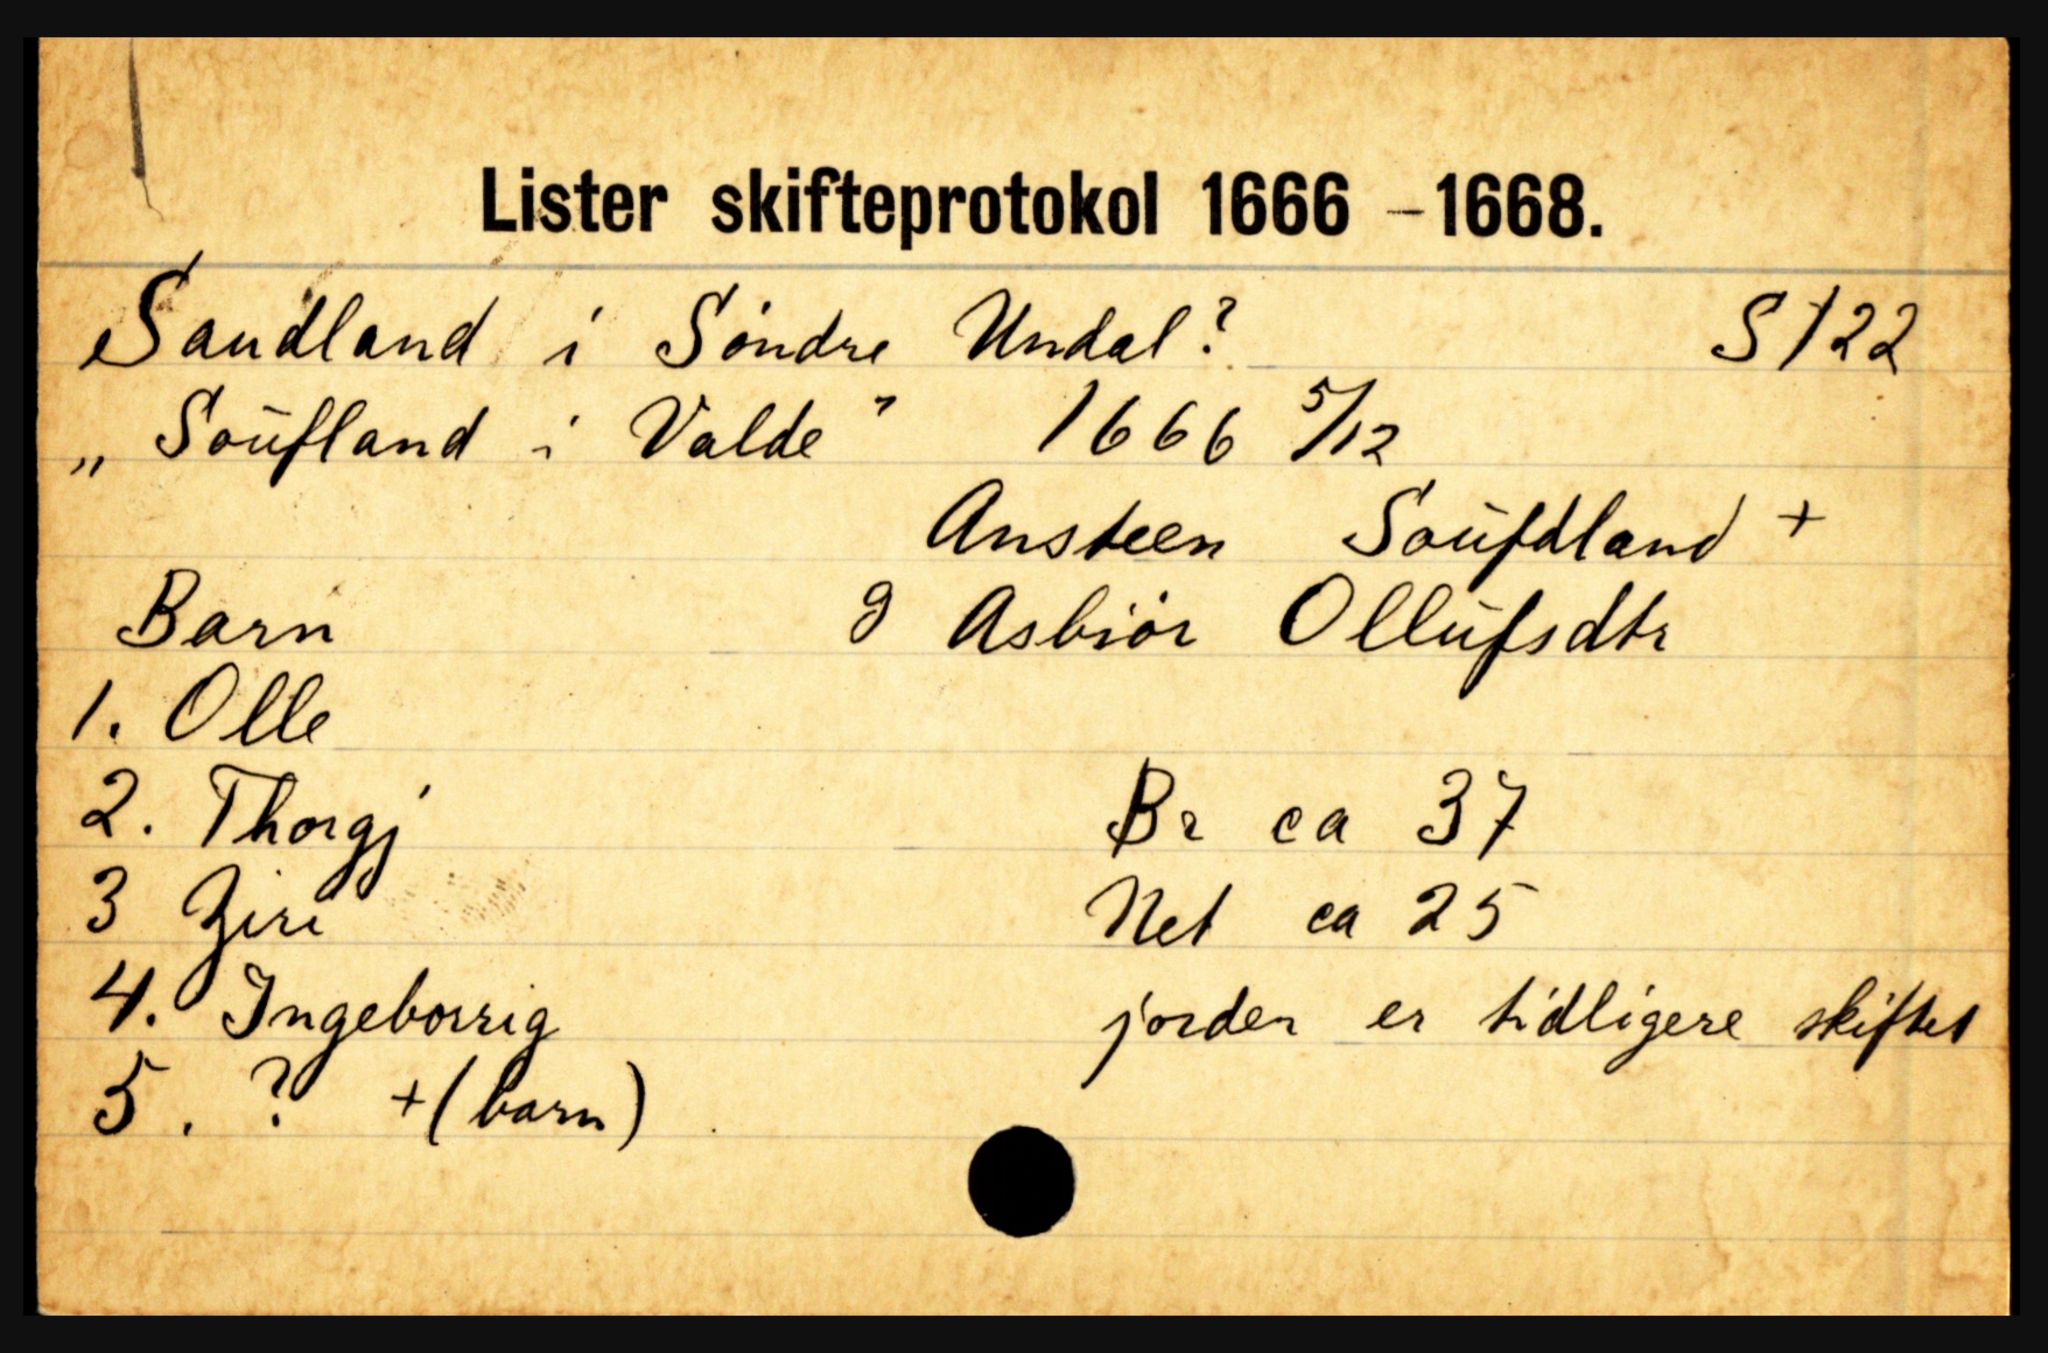 Lister skifteprotokol 1666 - 1668.
Saudland i Söndre Undal? S 122
„ Soūfland i Valde " 1666 5/12
Ansteen Soūfdland +
Barn g Asbiör Ollūfsdtr
1. Olle
2. Thorgj Br ca 37
3 Ziri Net ca 25
4. Ingeborrig jorden er tidligere skiftet
5. ? + (barn)